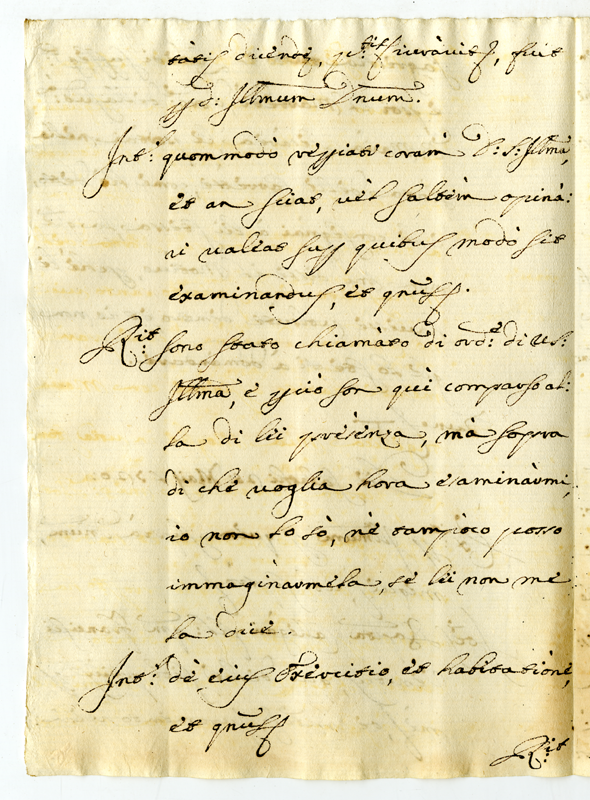 tatis dicente, iuravit, fuit
p d: Illmum Dnum.
Int: quommodò coram D: S: Illma,
et an sciat, vel saltem opinà:
ri valeat sup quibus modò sit
examinandus, et
Rit: sono stato chiamato di ord:e di VS:
Illma, e pciò son quì comparso al:
la di lei presenza, mà sopra
di che voglia hora esaminarmi,
io non lo sò, nè tampoco posso
immaginarmela, se lei non me
la dice.
Int: de eius Exercitio, et habitatione,
et
R:it